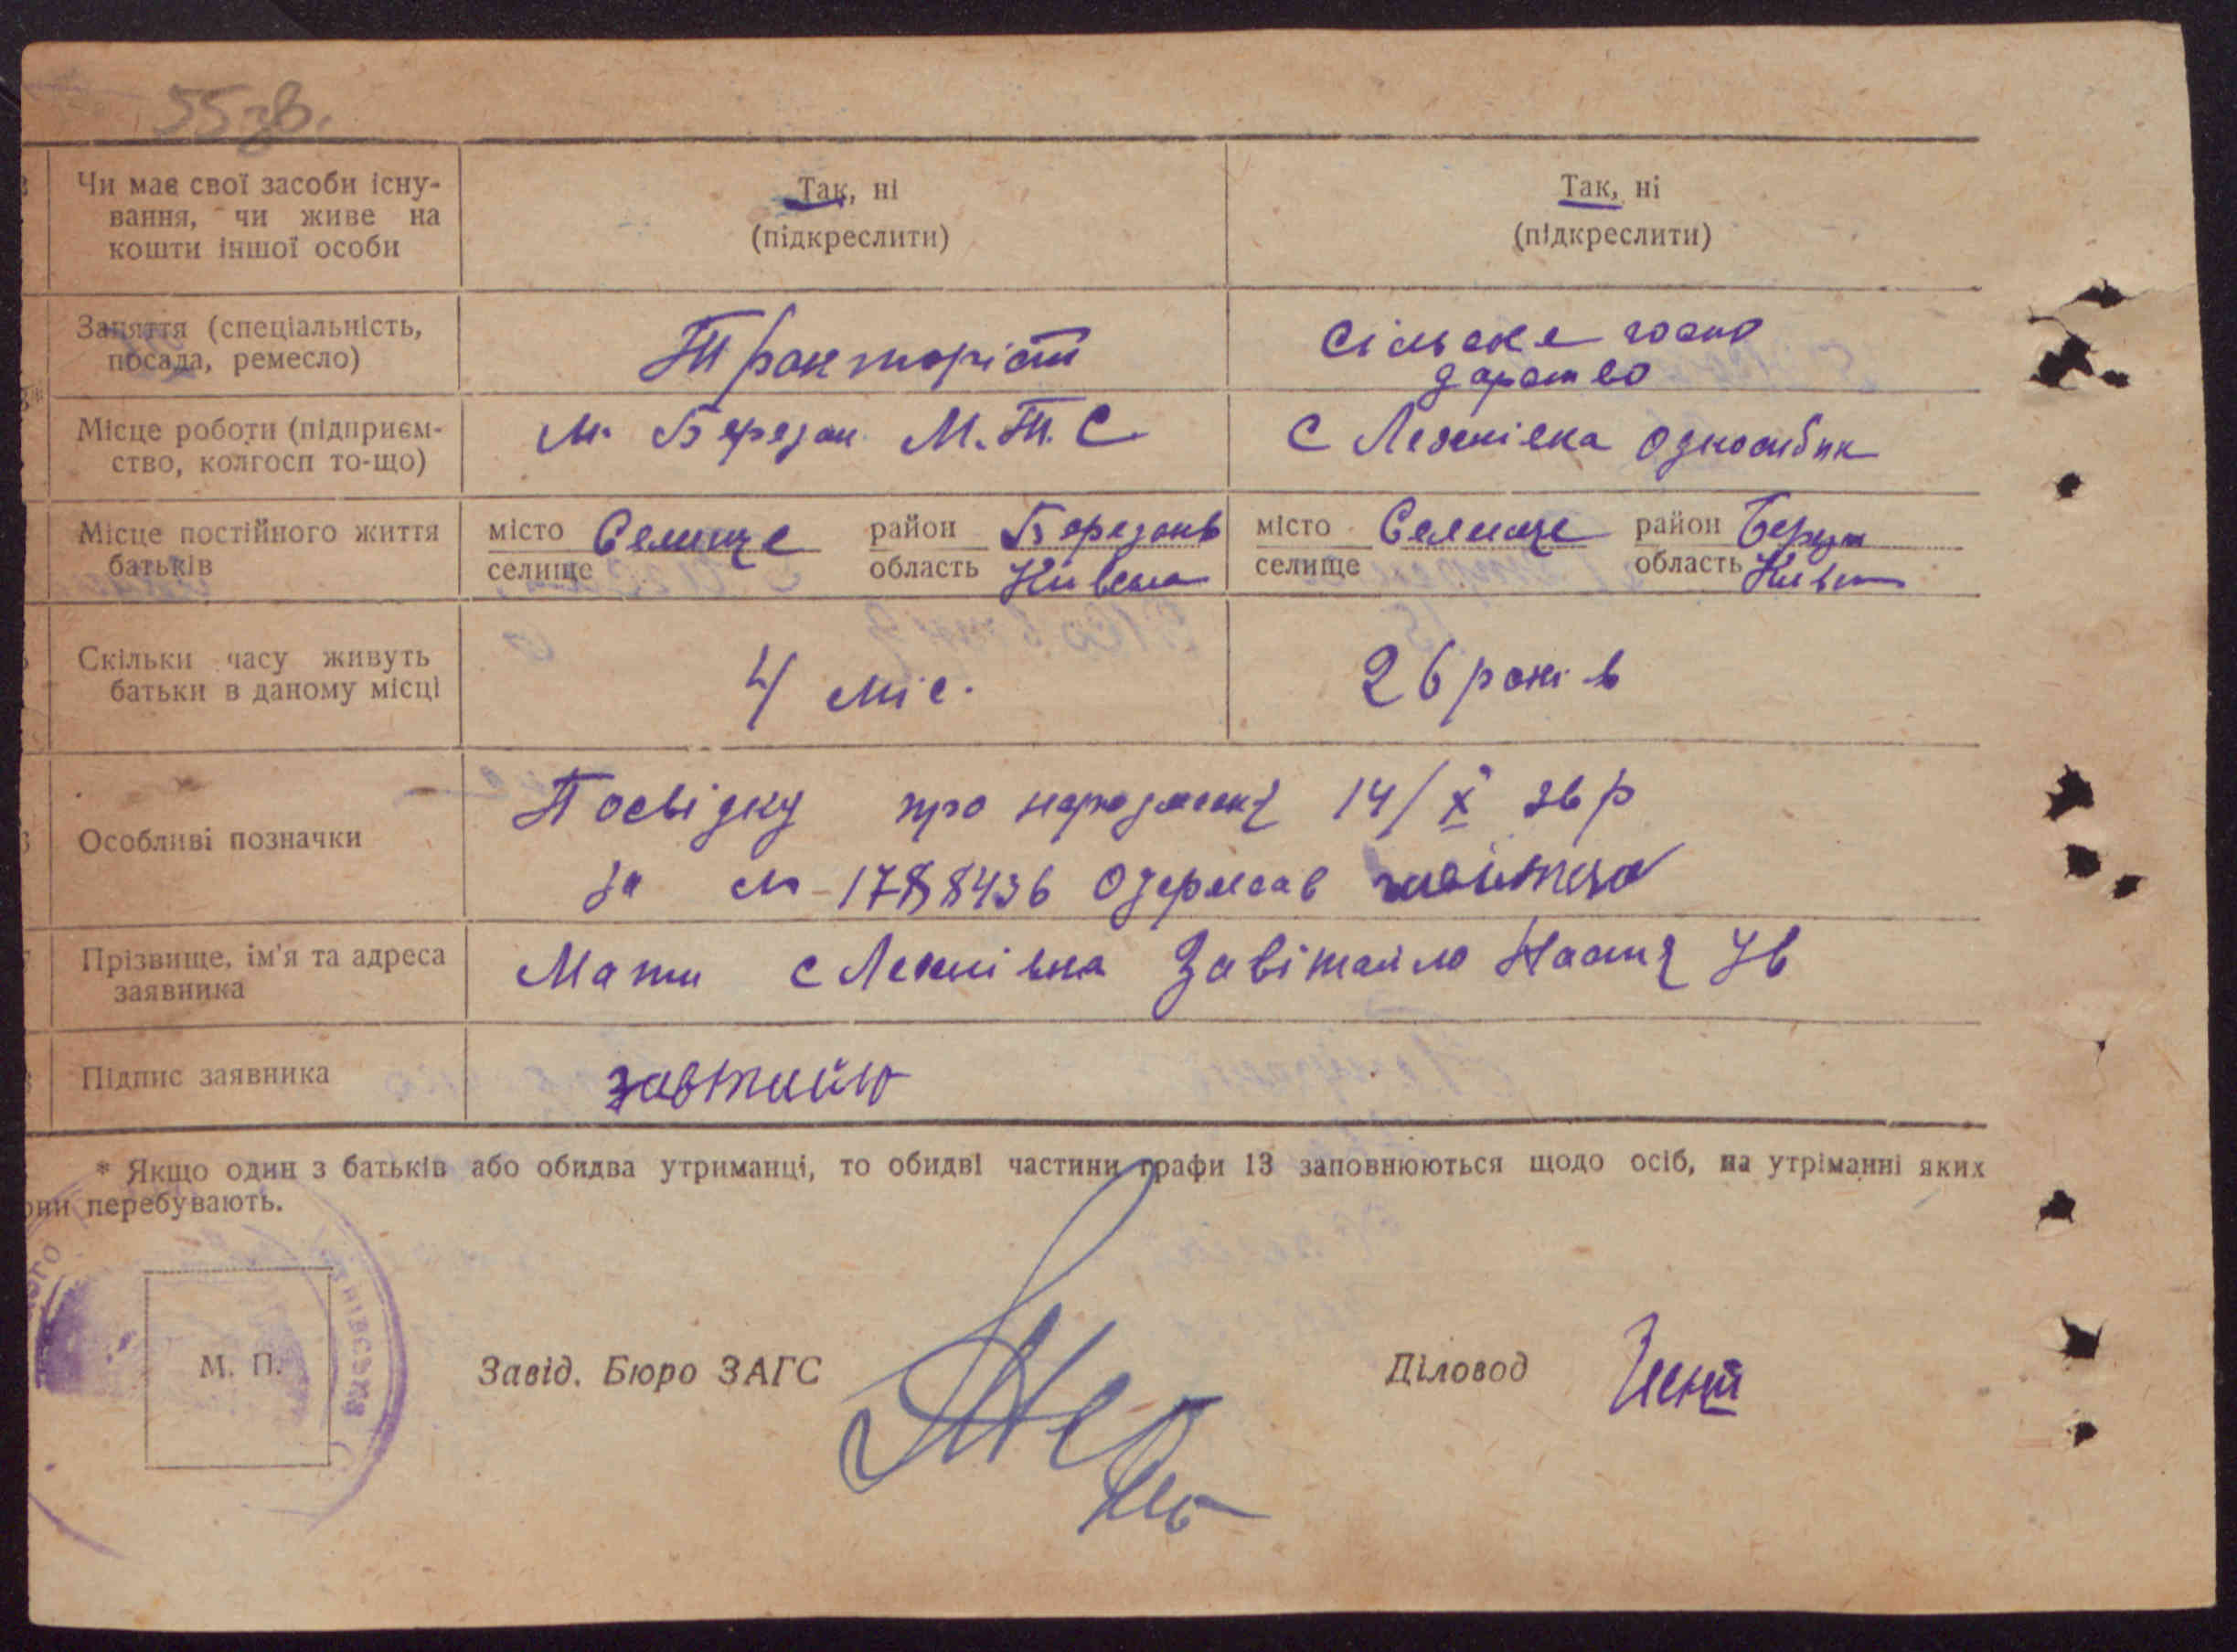 55 зв.
Чи має свої засоби існу-
вання, чи живе на
кошти іншої особи
Так, ні
(підкреслити)
Так, ні
(підкреслити)
Заняття (спеціальність,
посада, ремесло)
Тракторіст
Сільске госпо
дарство
Місце роботи (підприєм-
ство, колгосп то-що)
м. Березан М.Т.С
С Лехнівка Одноосибник
Місце постійного життя
батьків
місто Селище район Березанв
селище область Київска
місто Селище район Берез
селище область Київ
Скільки часу живуть
батьки в даному місці
4 міс.
26 років
Особливі позначки
Посвідку про народження 14/X 36 р
За № 1788436 Одержав
Прізвище, ім'я та адреса
заявника
Мати с Лехнівка Завітайло Настя Ів
Підпис заявника
завтайло
* Якщо один з батьків або обидва утриманці, то обидві частини графи 13 заповнюються щодо осіб, на утріманні яких
они перебувають.
М. П.
Завід. Бюро ЗАГС
Діловод